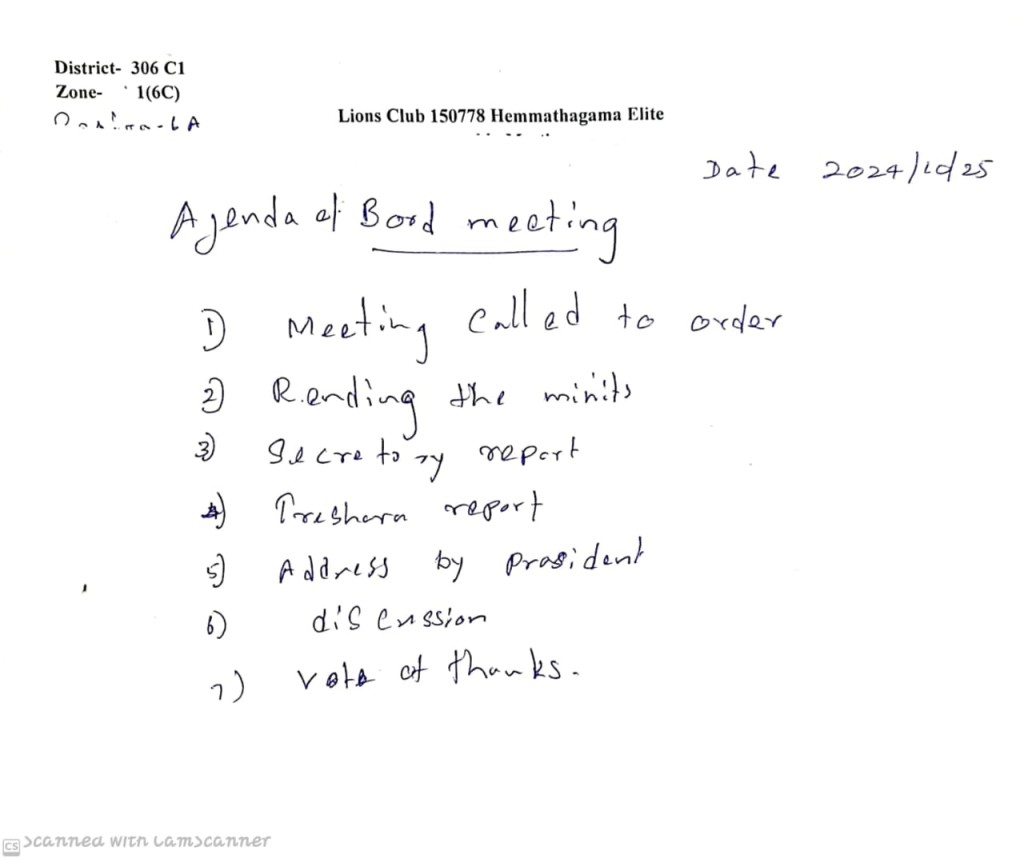 District- 306 C1
Zone- 1(6C)
Lions Club 150778 Hemmathagama Elite
Date 2024/10/25
Agenda of Bord meeting
1) Meeting Called to order
2) Rending the minits
3) Secretory report
4) Treshara report
5) Address by prasident
6) discussion
7) vote of thanks.
CS Scanned with CamScanner